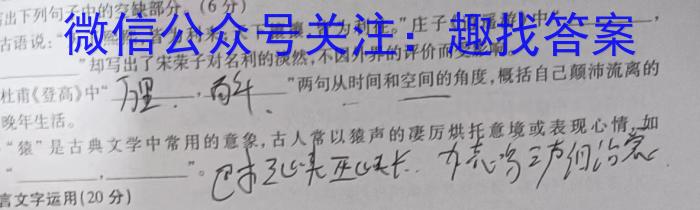 出下列句子中的空缺部分。(6分)
微信公众号关注：趣找答案
古语说：“
”却写出了宋荣子对名利的淡然,不因外界的评价而受影响
杜甫《登高》中“万里 ，百年 ”两句从时间和空间的角度,概括自己颠沛流离的
晚年生活。
“猿”是古典文学中常用的意象,古人常以猿声的凄厉烘托意境或表现心情,如
“ ， ”
巴东三峡巫峡长
言文字运用(20分)